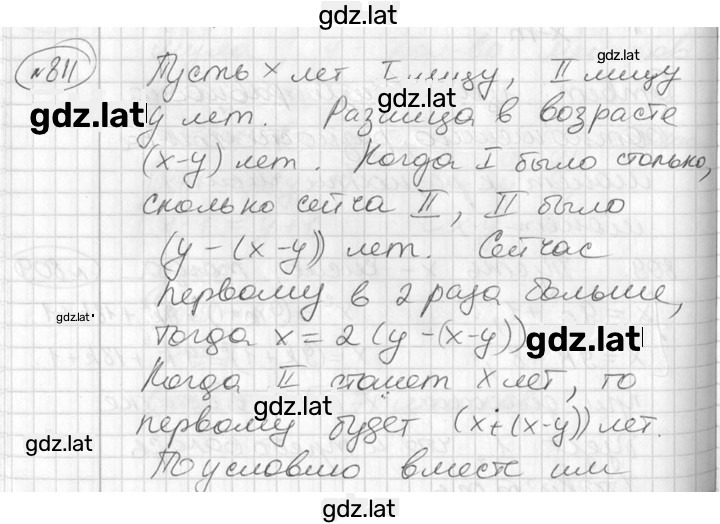 gdz.lat
№811 Пусть x лет I лицу, II лицу
gdz.lat
gdz.lat
gdz.lat
y лет. Разница в возрасте
(x-y) лет. Когда I было столько,
сколько сейча II, II было
(y-(x-y)) лет. Сейчас
первому в 2 раза больше,
gdz.lat
тогда x=2(y-(x-y))
gdz.lat
Когда II станет x лет, то
gdz.lat
первому будет (x+(x-y)) лет.
gdz.lat
По условию вместе им
gdz.lat